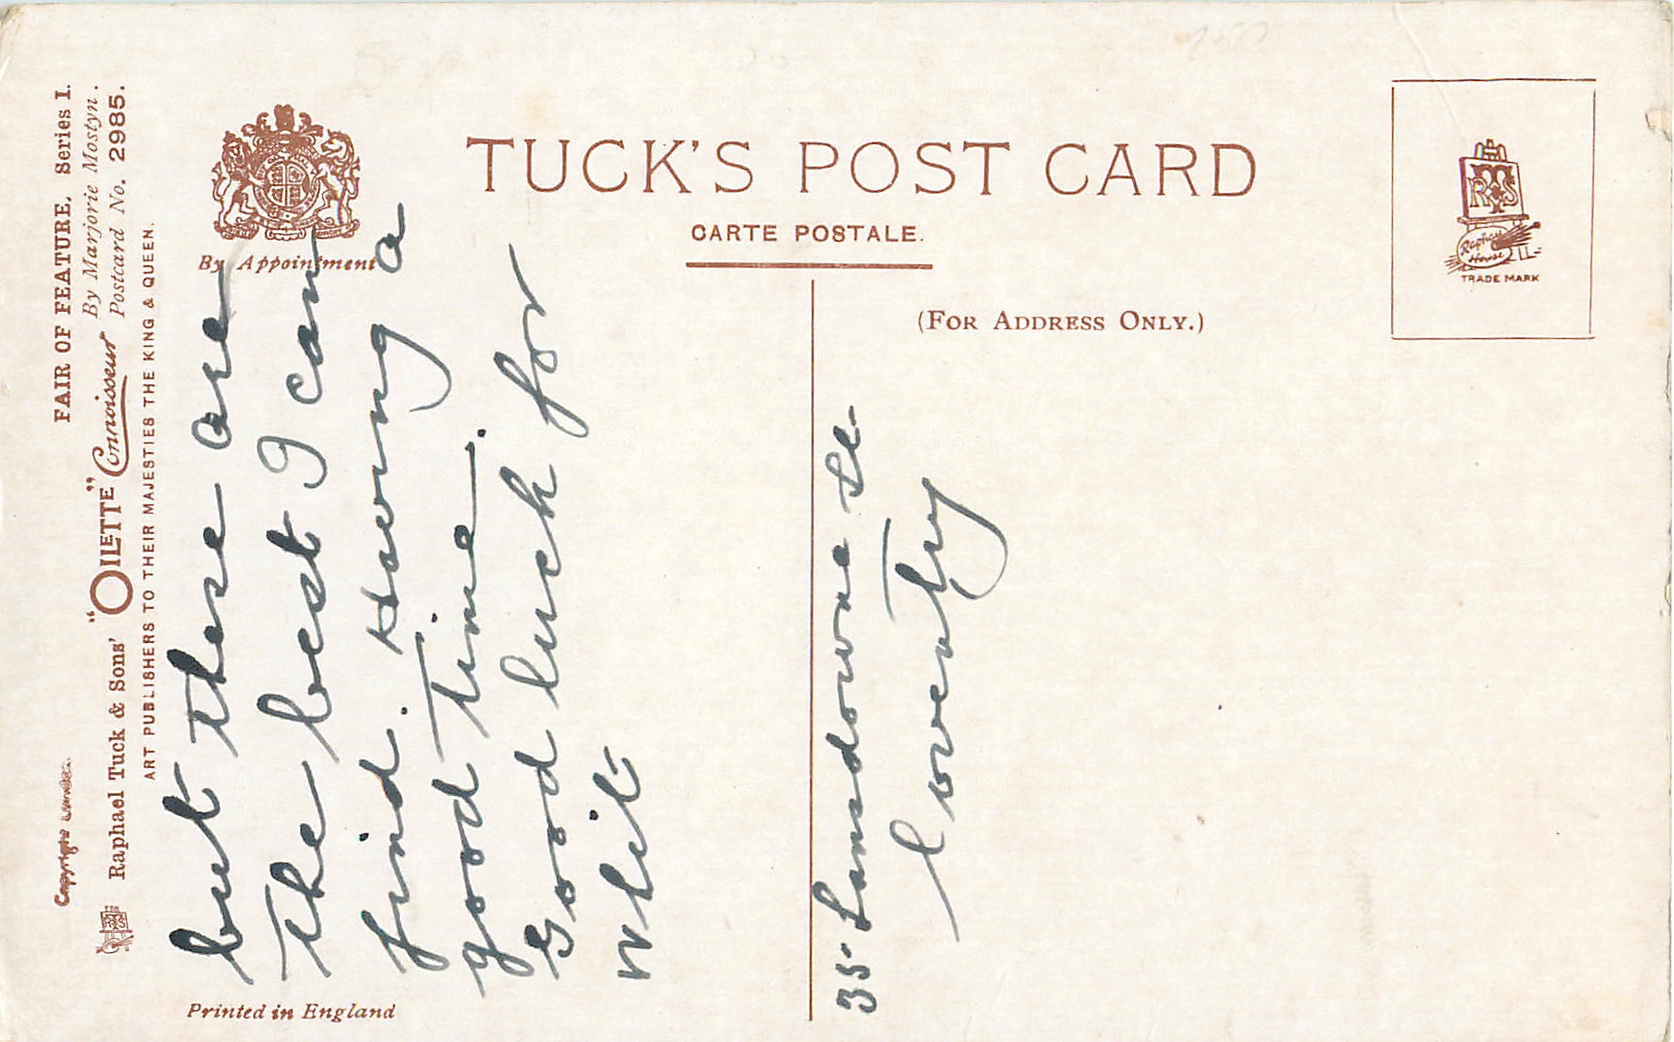 TUCK'S POST CARD
CARTE POSTALE.
(FOR ADDRESS ONLY.)
By Appointment
TRADE MARK
Raphael House
RTS
FAIR OF FEATURE. Series I.
By Marjorie Mostyn.
Raphael Tuck & Sons' "OILETTE" Connoisseur Postcard No. 2985.
ART PUBLISHERS TO THEIR MAJESTIES THE KING & QUEEN.
Copyright
RTS
but these are
the best I can
find. Having a
good time.
Good luck for
Whit
35 Lansdowne St
Coventry
Printed in England